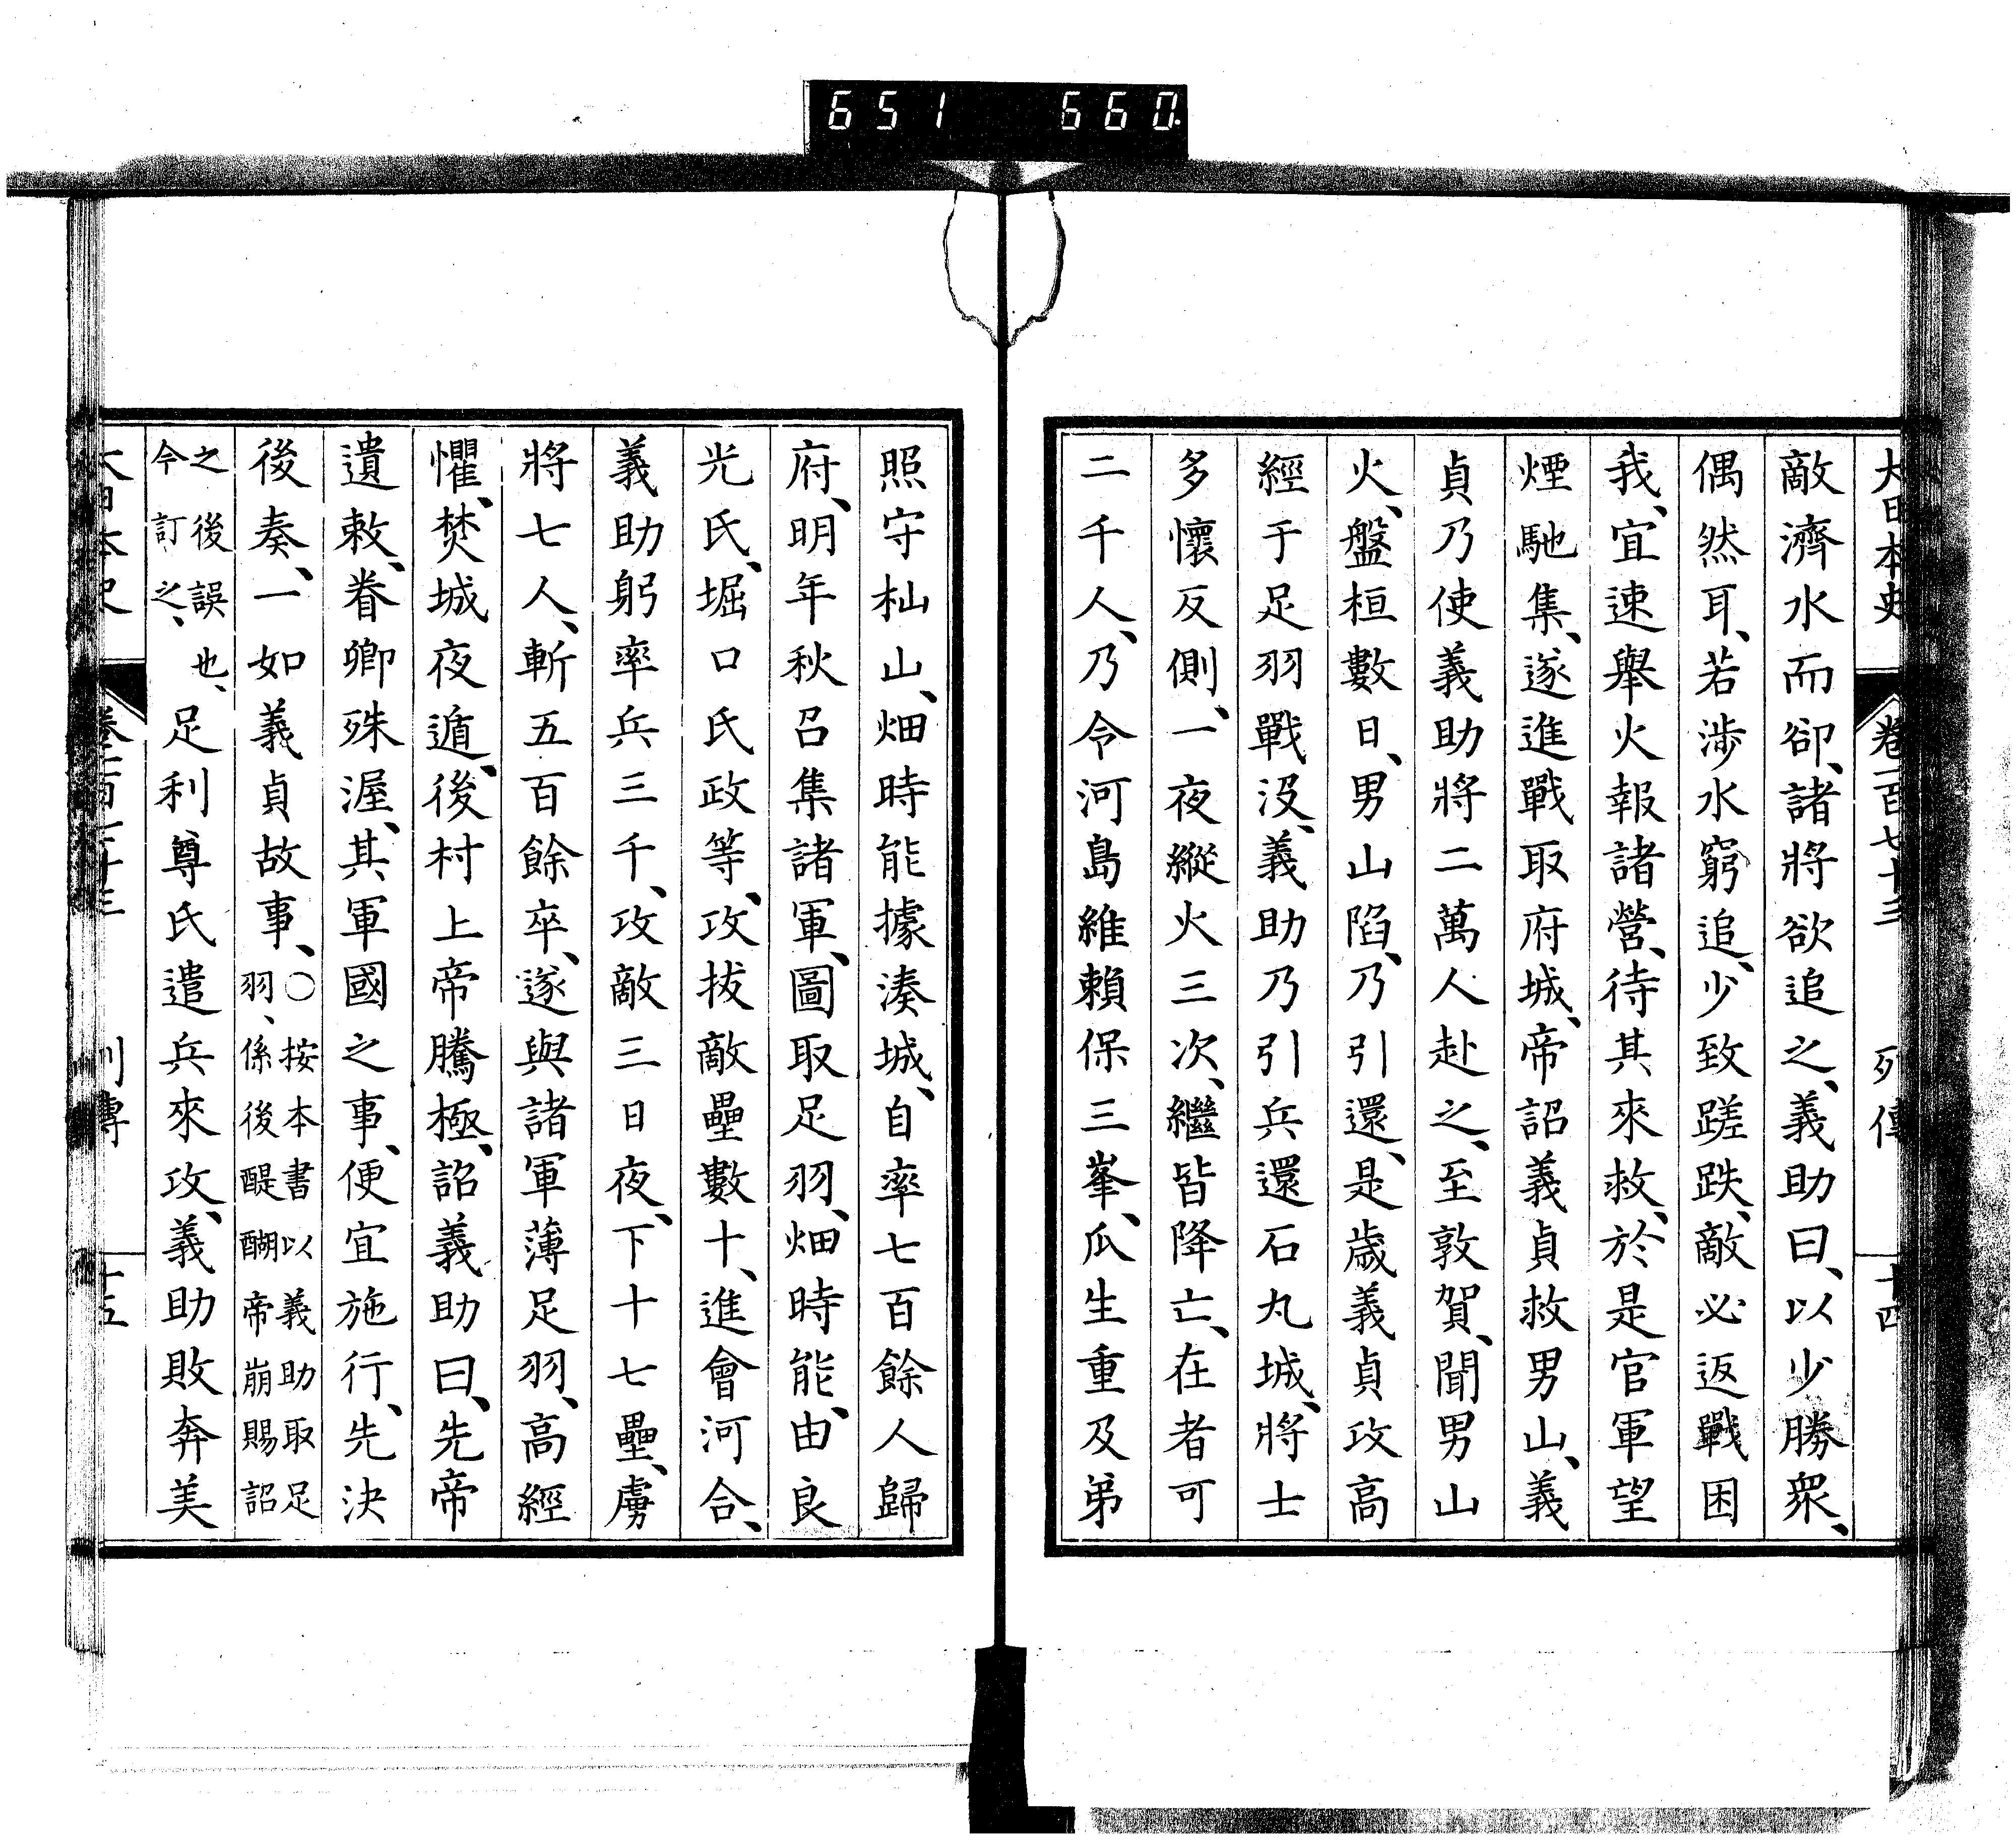 651 660
大日本史 卷一百七十三 列傳 十四
敵濟水而卻、諸將欲追之、義助曰、以少勝衆、
偶然耳、若渉水窮追、少致蹉跌、敵必返戰困
我、宜速舉火報諸營、待其來救、於是官軍望
煙馳集、遂進戰取府城、帝詔義貞救男山、義
貞乃使義助將二萬人赴之、至敦賀、聞男山
火、盤桓數日、男山陷、乃引還、是歳義貞攻高
經于足羽戰沒、義助乃引兵還石丸城、將士
多懷反側、一夜縱火三次、繼皆降亡、在者可
二千人、乃令河島維賴保三峯、瓜生重及弟
照守杣山、畑時能據湊城、自率七百餘人歸
府、明年秋召集諸軍、圖取足羽、畑時能、由良
光氏、堀口氏政等、攻拔敵壘數十、進會河合、
義助躬率兵三千、攻敵三日夜、下十七壘、虜
將七人、斬五百餘卒、遂與諸軍薄足羽、高經
懼、焚城夜遁、後村上帝騰極、詔義助曰、先帝
遺敕、眷卿殊渥、其軍國之事、便宜施行、先決
後奏、一如義貞故事、○按本書以義助取足
羽、係後醍醐帝崩賜詔
之後誤也、
今訂之、
足利尊氏遣兵來攻、義助敗奔美
大日本史 卷一百七十三 列傳 十五